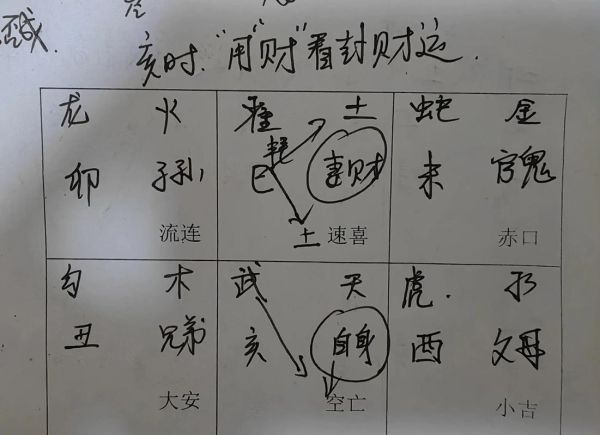 亥时."用"财"看卦财运.
龙 火 雀 土 蛇 金
卯 子孙 巳 妻财 未 官鬼
流连 土 速喜 赤口
勾 木 武 天 虎. 水
丑 兄弟 亥 自身 酉 父母
大安 空亡 小吉